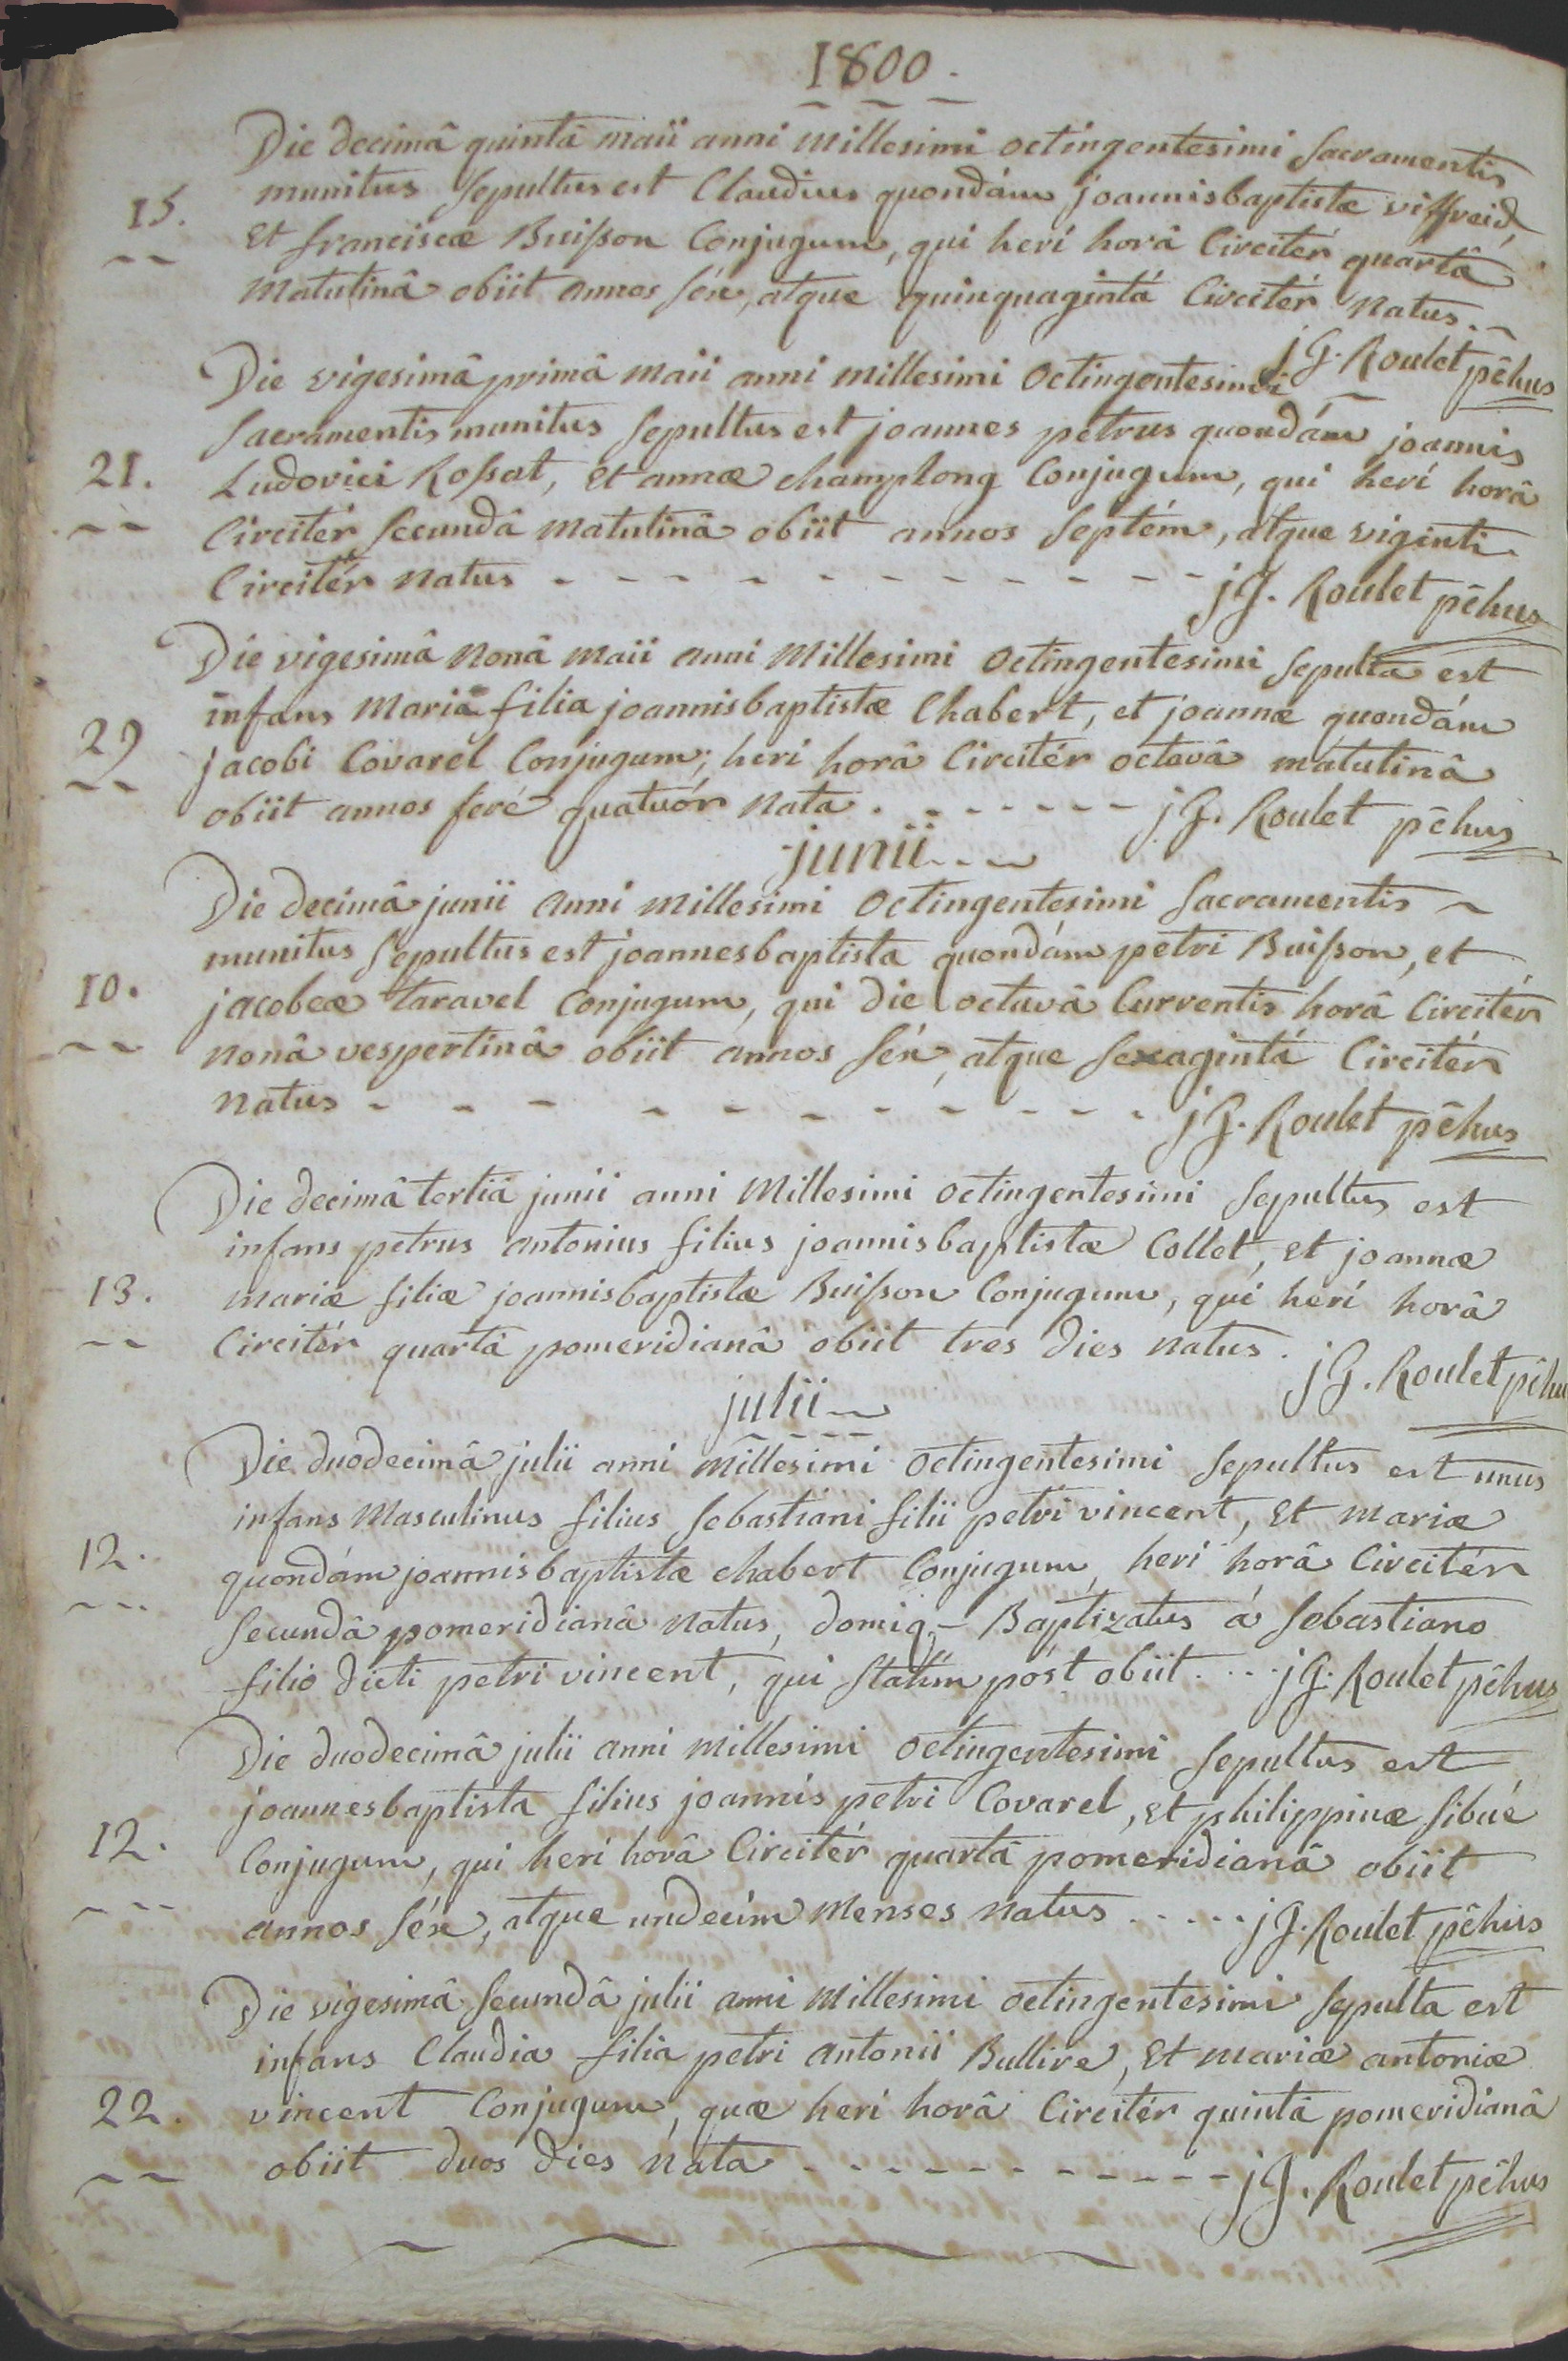 1800.
Die decimâ quintâ maii anni millesimi octingentesimi Sacramentis
15. munitus Sepultus est Claudius quondám joannisbaptistæ viffreid,
et franciscæ Buisson Conjugum, qui herí horâ Circitér quartâ
Matutinâ obiit annos séx, atque quinquagintá Circitér natus.
jG. Roulet pēhus
Die vigesimâ primâ maii anni millesimi Octingentesimi
Sacramentis munitus Sepultus est joannes petrus quondám joannis
21. Ludovici Rossat, et annæ champlong Conjugum, qui herí horâ
Circitér Secundâ matutinâ obiit annos Septém, atque viginti
Circitér natus - - - - - - - - - - jG. Roulet pēhus
Die vigesimâ nonâ maii anni Millesimi Octingentesimi Sepulta est
infans Maria filia joannisbaptistæ Chabert, et joannæ quondám
29 jacobi Covarel Conjugum; herí horâ Circitér octavâ matutinâ
obiit annos feré quatuór nata. - - - - - jG. Roulet pēhus
junii
Die decimâ junii anni millesimi Octingentesimi Sacramentis
munitus Sepultus est joannesbaptista quondám petri Buisson, et
10. jacobeæ taravel Conjugum, qui die octavâ Currentis horâ Circitér
nonâ vespertinâ obiit annos séx, atque sexagintá Circitér
natus - - - - - - - - - - jG. Roulet pēhus
Die decimâ tertiâ junii anni Millesimi octingentesimi Sepultus est
infans petrus antonius filius joannisbaptistæ Collet, et joannæ
13. mariæ filiæ joannisbaptistæ Buisson Conjugum, qui herí horâ
Circitér quartâ pomeridianâ obiit tres dies natus. jG. Roulet pēhu
julii
Die duodecimâ julii anni millesimi octingentesimi Sepultus est unus
infans Masculinus filius Sebastiani filii petri vincent, et mariæ
12. quondám joannisbaptistæ chabert Conjugum, herí horâ Circitér
Secundâ pomeridianâ natus, domiq;- Baptizatus á Sebastiano
filio dicti petri vincent, qui statím póst obiit. . . . jG. Roulet pēhus
Die duodecimâ julii anni millesimi octingentesimi Sepultus est
joannesbaptista filius joannis petri Covarel, et philippinæ sibué
12. Conjugum, qui herí horâ Circitér quartâ pomeridianâ obiit
annos séx, atque undecím menses natus . . . . . jG. Roulet pēhus
Die vigesimâ Secundâ julii anni millesimi octingentesimi Sepulta est
infans Claudia filia petri antonii Bullire, et mariæ antoniæ
22. vincent Conjugum, quæ herí horâ Circitér quintâ pomeridianâ
obiit duos dies nata - - - - - - - - - - jG. Roulet pēhus